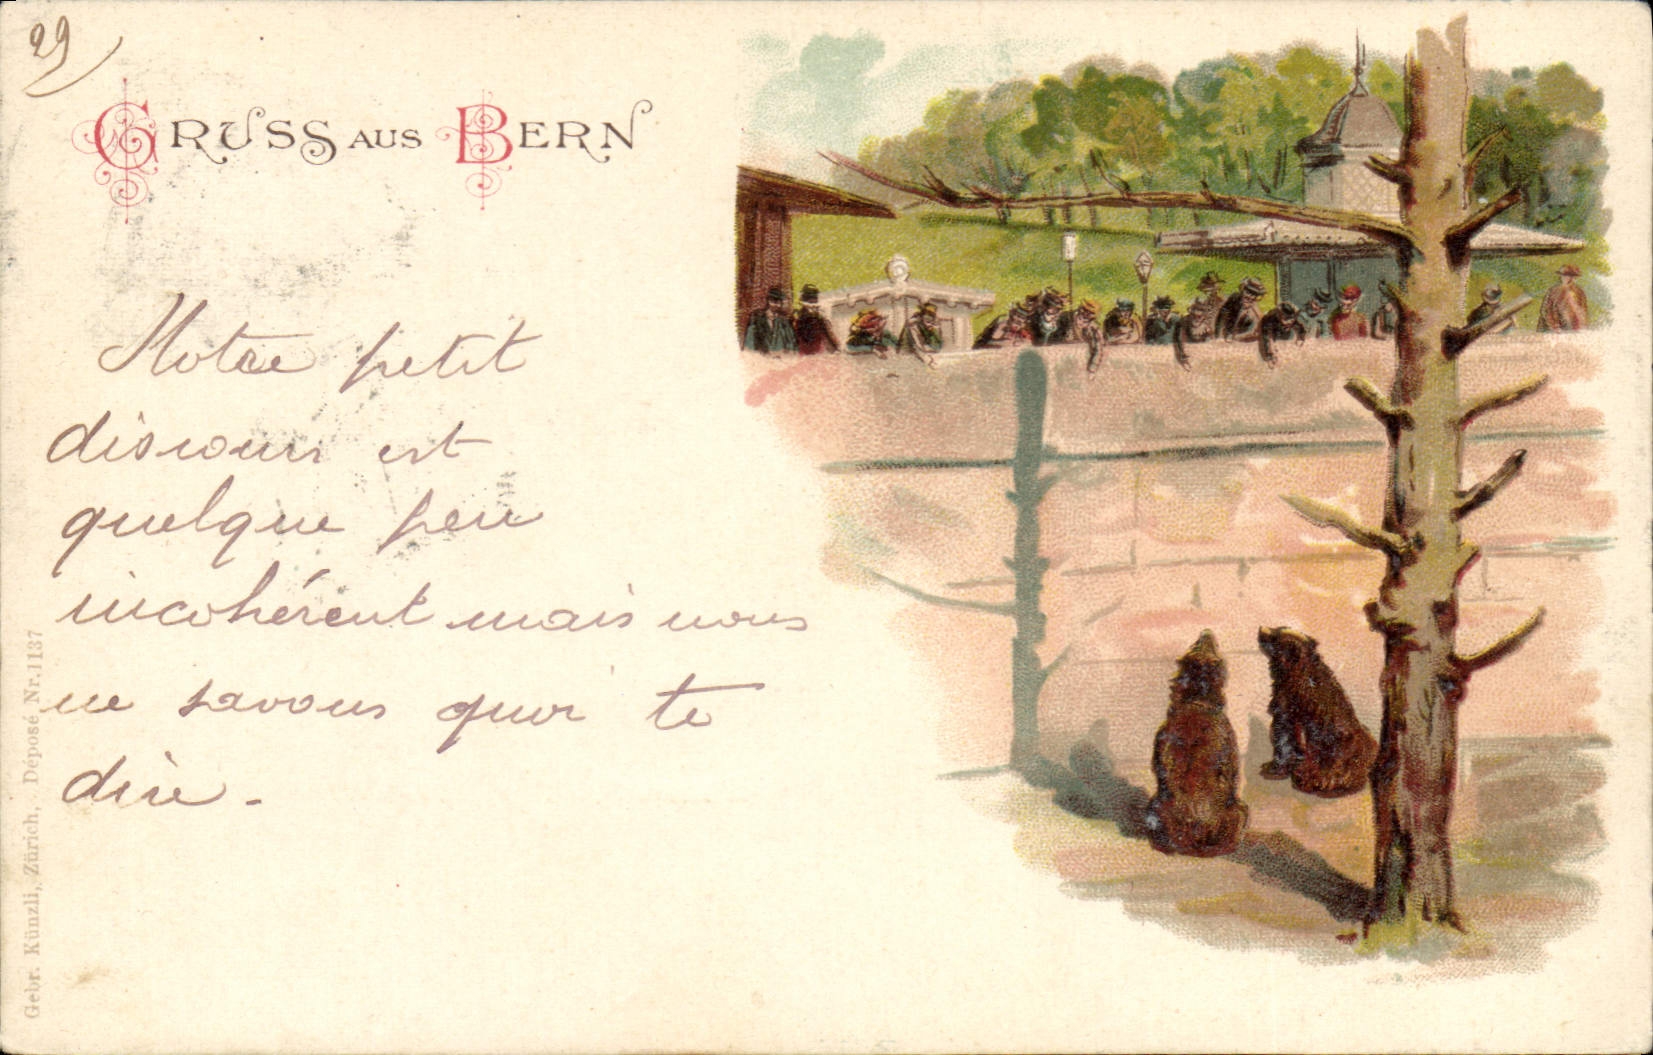 29
GRUSS AUS BERN
Notre petit
discours est
quelque peu
incohérent mais nous
ne savons quoi te
dire.
Gebr. Künzli, Zürich, Déposé Nr. 1137